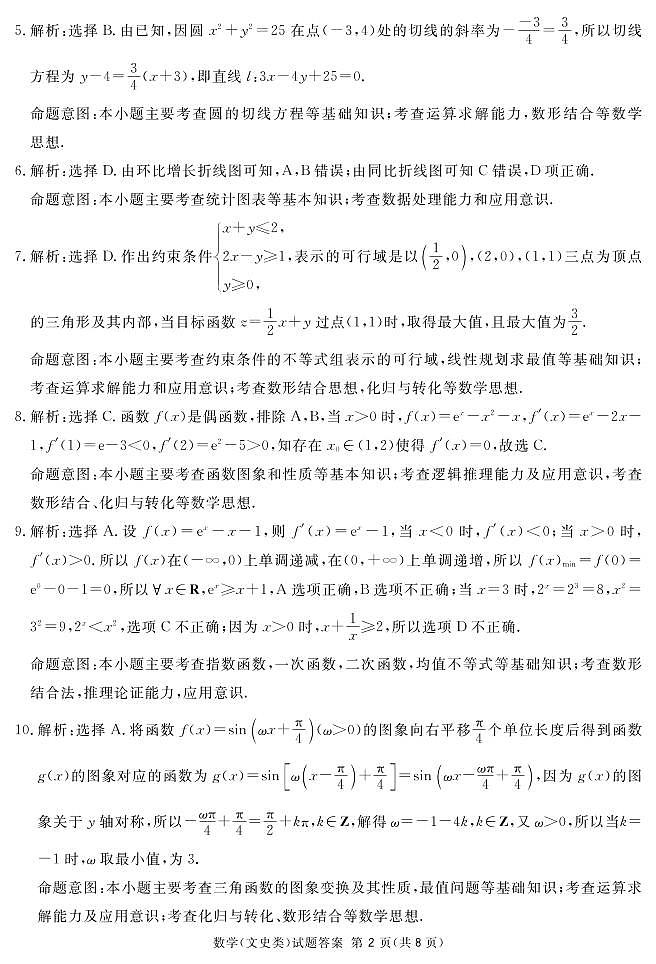 5. 解析:选择 B. 由已知,因圆 x²+y²=25 在点(-3,4)处的切线的斜率为-\frac{-3}{4}=\frac{3}{4},所以切线
方程为 y-4=\frac{3}{4}(x+3),即直线 l:3x-4y+25=0.
命题意图:本小题主要考查圆的切线方程等基础知识;考查运算求解能力,数形结合等数学
思想.
6. 解析:选择 D. 由环比增长折线图可知,A,B 错误;由同比折线图可知 C 错误,D 项正确.
命题意图:本小题主要考查统计图表等基本知识;考查数据处理能力和应用意识.
7. 解析:选择 D. 作出约束条件{x+y≤2, 2x-y≥1, y≥0,表示的可行域是以(\frac{1}{2},0),(2,0),(1,1)三点为顶点
的三角形及其内部,当目标函数 z=\frac{1}{2}x+y 过点(1,1)时,取得最大值,且最大值为\frac{3}{2}.
命题意图:本小题主要考查约束条件的不等式组表示的可行域,线性规划求最值等基础知识;
考查运算求解能力和应用意识;考查数形结合思想,化归与转化等数学思想.
8. 解析:选择 C. 函数 f(x)是偶函数,排除 A,B,当 x>0 时,f(x)=eˣ-x²-x,f′(x)=eˣ-2x-
1,f′(1)=e-3<0,f′(2)=e²-5>0,知存在 x₀∈(1,2)使得 f′(x)=0,故选 C.
命题意图:本小题主要考查函数图象和性质等基本知识;考查逻辑推理能力及应用意识,考查
数形结合、化归与转化等数学思想.
9. 解析:选择 A. 设 f(x)=eˣ-x-1,则 f′(x)=eˣ-1,当 x<0 时,f′(x)<0;当 x>0 时,
f′(x)>0. 所以 f(x)在(-∞,0)上单调递减,在(0,+∞)上单调递增,所以 f(x)min=f(0)=
e⁰-0-1=0,所以∀x∈R,eˣ≥x+1,A 选项正确,B 选项不正确;当 x=3 时,2ˣ=2³=8,x²=
3²=9,2ˣ<x²,选项 C 不正确;因为 x>0 时,x+\frac{1}{x}≥2,所以选项 D 不正确.
命题意图:本小题主要考查指数函数,一次函数,二次函数,均值不等式等基础知识;考查数形
结合法,推理论证能力,应用意识.
10. 解析:选择 A. 将函数 f(x)=sin(ωx+\frac{π}{4})(ω>0)的图象向右平移\frac{π}{4}个单位长度后得到函数
g(x)的图象对应的函数为 g(x)=sin[ω(x-\frac{π}{4})+\frac{π}{4}]=sin(ωx-\frac{ωπ}{4}+\frac{π}{4}),因为 g(x)的图
象关于 y 轴对称,所以-\frac{ωπ}{4}+\frac{π}{4}=\frac{π}{2}+kπ,k∈Z,解得 ω=-1-4k,k∈Z,又 ω>0,所以当k=
-1 时,ω 取最小值,为 3.
命题意图:本小题主要考查三角函数的图象变换及其性质,最值问题等基础知识;考查运算求
解能力及应用意识;考查化归与转化、数形结合等数学思想.
数学(文史类)试题答案 第 2 页(共 8 页)